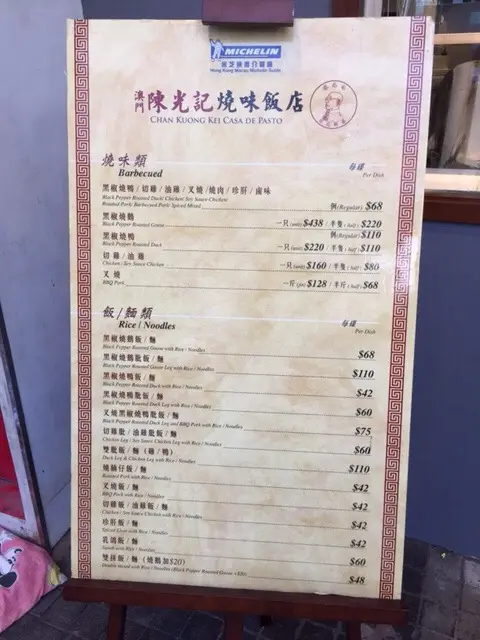 MICHELIN
米芝蓮推介食店
Hong Kong Macau Michelin Guide
澳門 陳光記燒味飯店
CHAN KUONG KEI CASA DE PASTO
燒味類 每碟
Barbecued Per Dish
黑椒燒鴨/切雞/油雞/叉燒/燒肉/珍肝/鹵味
Black Pepper Roasted Duck/ Chicken/ Soy Sauce Chicken
Roasted Pork/ Barbecued Pork/ Spiced Mixed 例(Regular) $68
黑椒燒鵝 一只(unit) $438 / 半隻(Half) $220
Black Pepper Roasted Goose 例(Regular) $110
黑椒燒鴨 一只(unit) $220 / 半隻(Half) $110
Black Pepper Roasted Duck
切雞/油雞 一只(unit) $160 / 半隻(Half) $80
Chicken / Soy Sauce Chicken
叉燒 一斤(jin) $128 / 半斤(Half) $68
BBQ Pork
飯/麵類 每碟
Rice / Noodles Per Dish
黑椒燒鵝飯/麵 $68
Black Pepper Roasted Goose with Rice / Noodles
黑椒燒鵝髀飯/麵 $110
Black Pepper Roasted Goose Leg with Rice / Noodles
黑椒燒鴨飯/麵 $42
Black Pepper Roasted Duck with Rice / Noodles
黑椒燒鴨髀飯/麵 $60
Black Pepper Roasted Duck Leg with Rice / Noodles
叉燒黑椒燒鴨髀飯/麵 $75
Black Pepper Roasted Duck Leg and BBQ Pork with Rice / Noodles
切雞髀/油雞髀飯/麵 $60
Chicken Leg / Soy Sauce Chicken Leg with Rice / Noodles
雙髀飯/麵 (雞/鴨) $110
Duck Leg & Chicken Leg with Rice / Noodles
燒腩仔飯/麵 $42
Roasted Pork with Rice / Noodles
叉燒飯/麵 $42
BBQ Pork with Rice / Noodles
切雞飯/油雞飯/麵 $42
Chicken / Soy Sauce Chicken with Rice / Noodles
珍肝飯/麵 $42
Spiced Liver with Rice / Noodles
乳鴿飯/麵 $60
Squab with Rice / Noodles
雙拼飯/麵 (燒鵝加$20) $48
Double mixed with Rice / Noodles (Black Pepper Roasted Goose +$20)